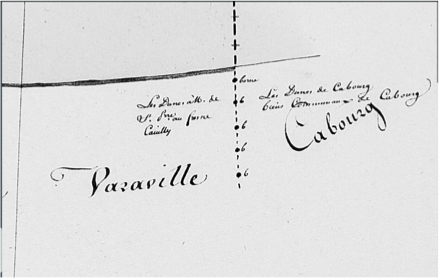 borne
6
6
6
6
Les Dunes à M. de
St. Pre. au fresne
Cailly
Les Dunes de Cabourg
biens Communaux de Cabourg
Cabourg
Varaville